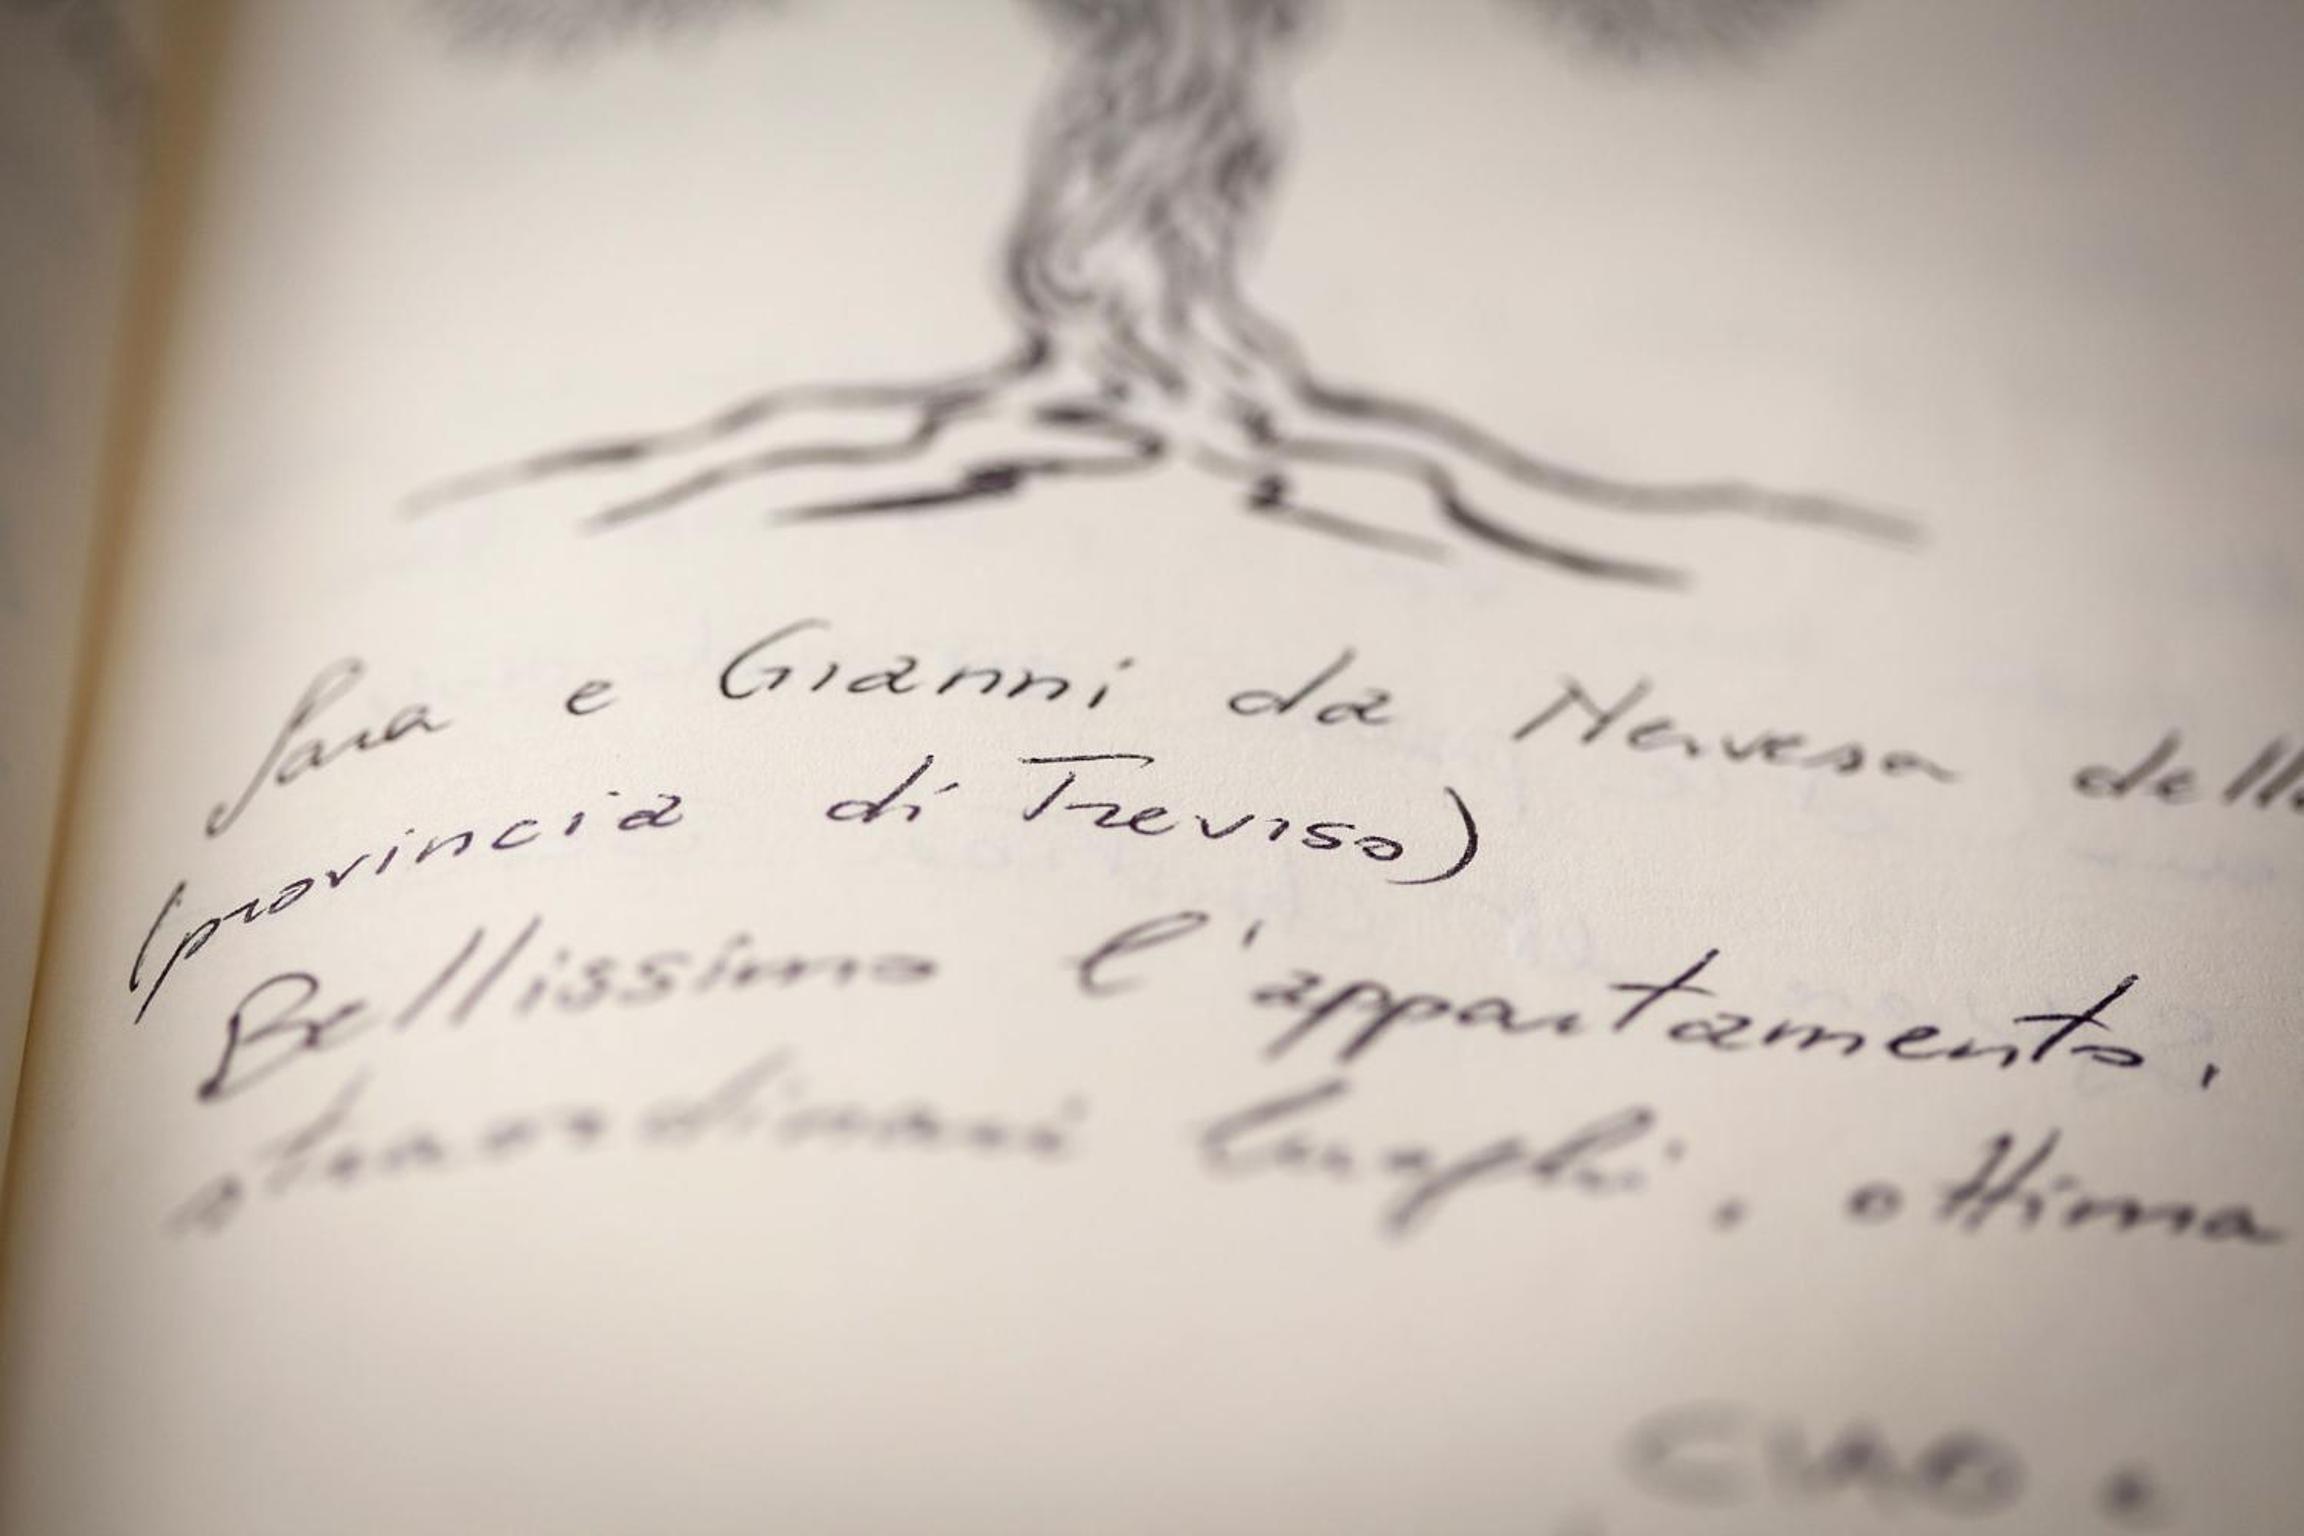 Sara e Gianni da Nervesa della
(provincia di Treviso)
Bellissimo l'appartamento,
straordinari luoghi, ottima
CIAO.